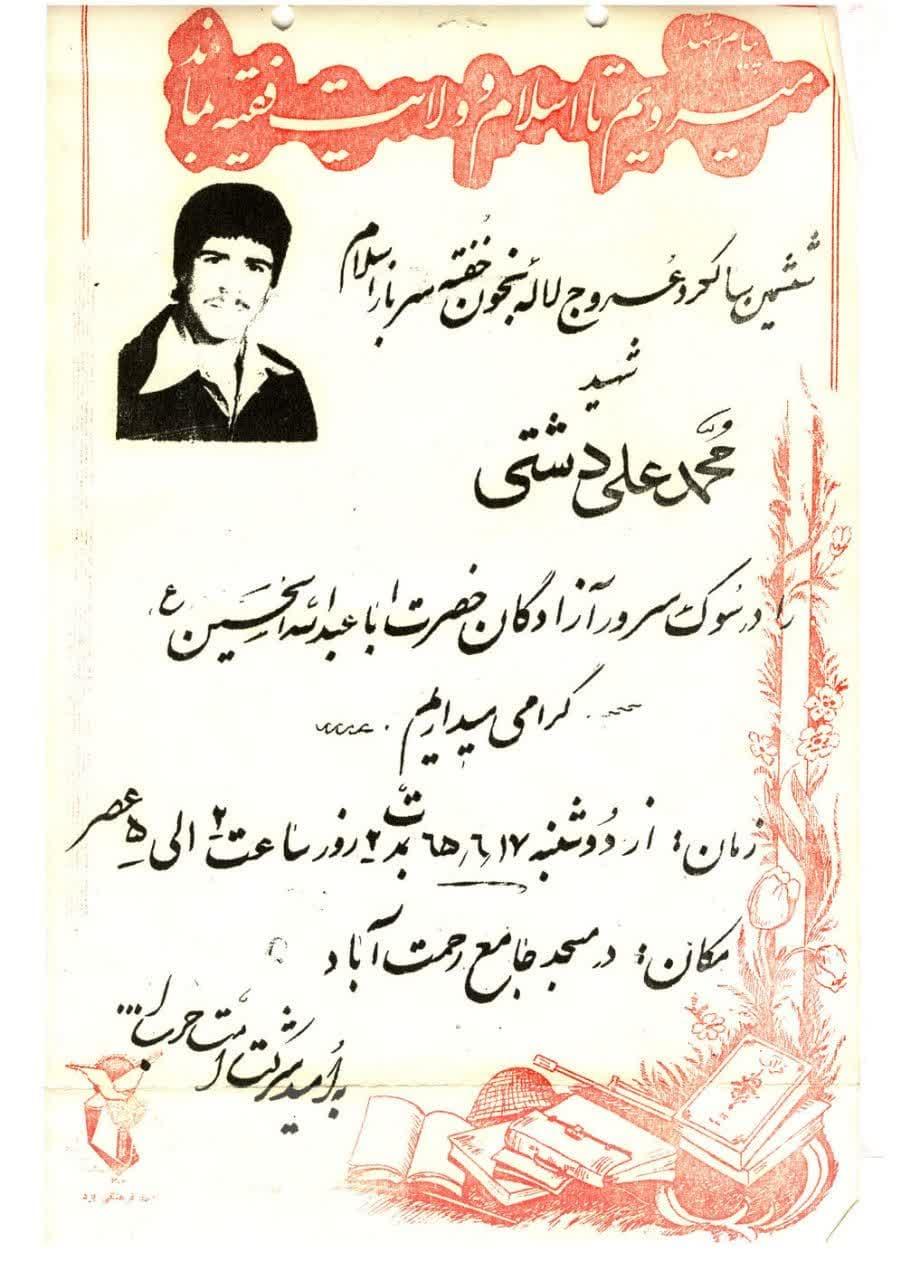 پیام شهدا
میرویم تا اسلام و ولایت فقیه بماند
ششمین سالگرد عروج لاله بخون خفته سرباز اسلام
شهید
محمد علی دشتی
را در سوک سرور آزادگان حضرت ابا عبدالله الحسین ع
گرامی میداریم
زمان: از دوشنبه ۶۵٫۶٫۱۷ بمدت ۲ روز ساعت ۲ الی ۵ عصر
مکان: در مسجد جامع رحمت آباد
به امید شرکت امت حزب ا...